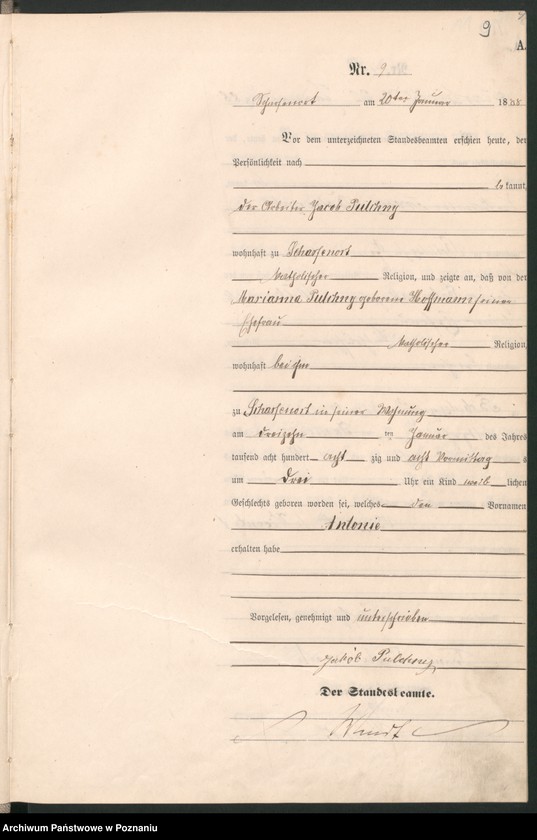 9
A.
Nr. 9.
Scharfenort am 20ten Januar 1888
Vor dem unterzeichneten Standesbeamten erschien heute, der
Persönlichkeit nach
be kannt,
der Arbeiter Jacob Pulchny
wohnhaft zu Scharfenort
katholischer Religion, und zeigte an, daß von der
Marianna Pulchny geborene Hoffmann seiner
Ehefrau
katholischer Religion,
wohnhaft bei ihm
zu Scharfenort in seiner Wohnung
am dreizehn ten Januar des Jahres
tausend acht hundert acht zig und acht Vormittag s
um drei Uhr ein Kind weib lichen
Geschlechts geboren worden sei, welches den Vornamen
Antonie
erhalten habe
Vorgelesen, genehmigt und unterschrieben
Jakób Pulchny
Der Standesbeamte.
Wendt
Archiwum Państwowe w Poznaniu